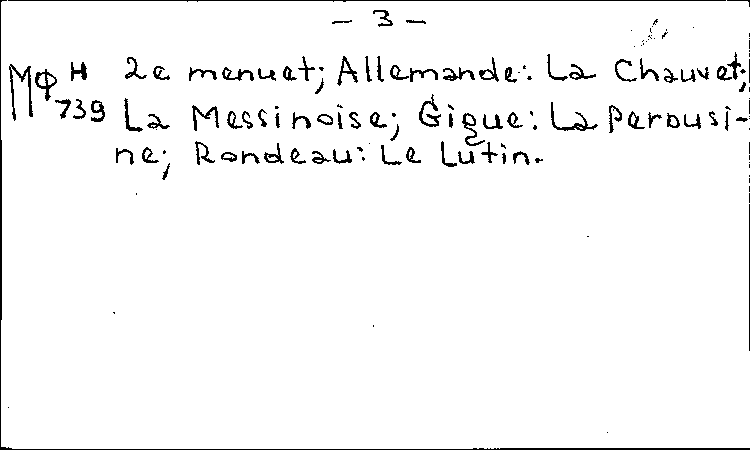 – 3 –
МФ H 739 2e menuet; Allemande: La Chauvet;
La Messinoise; Gigue: La Perousi-
ne; Rondeau: Le Lutin.